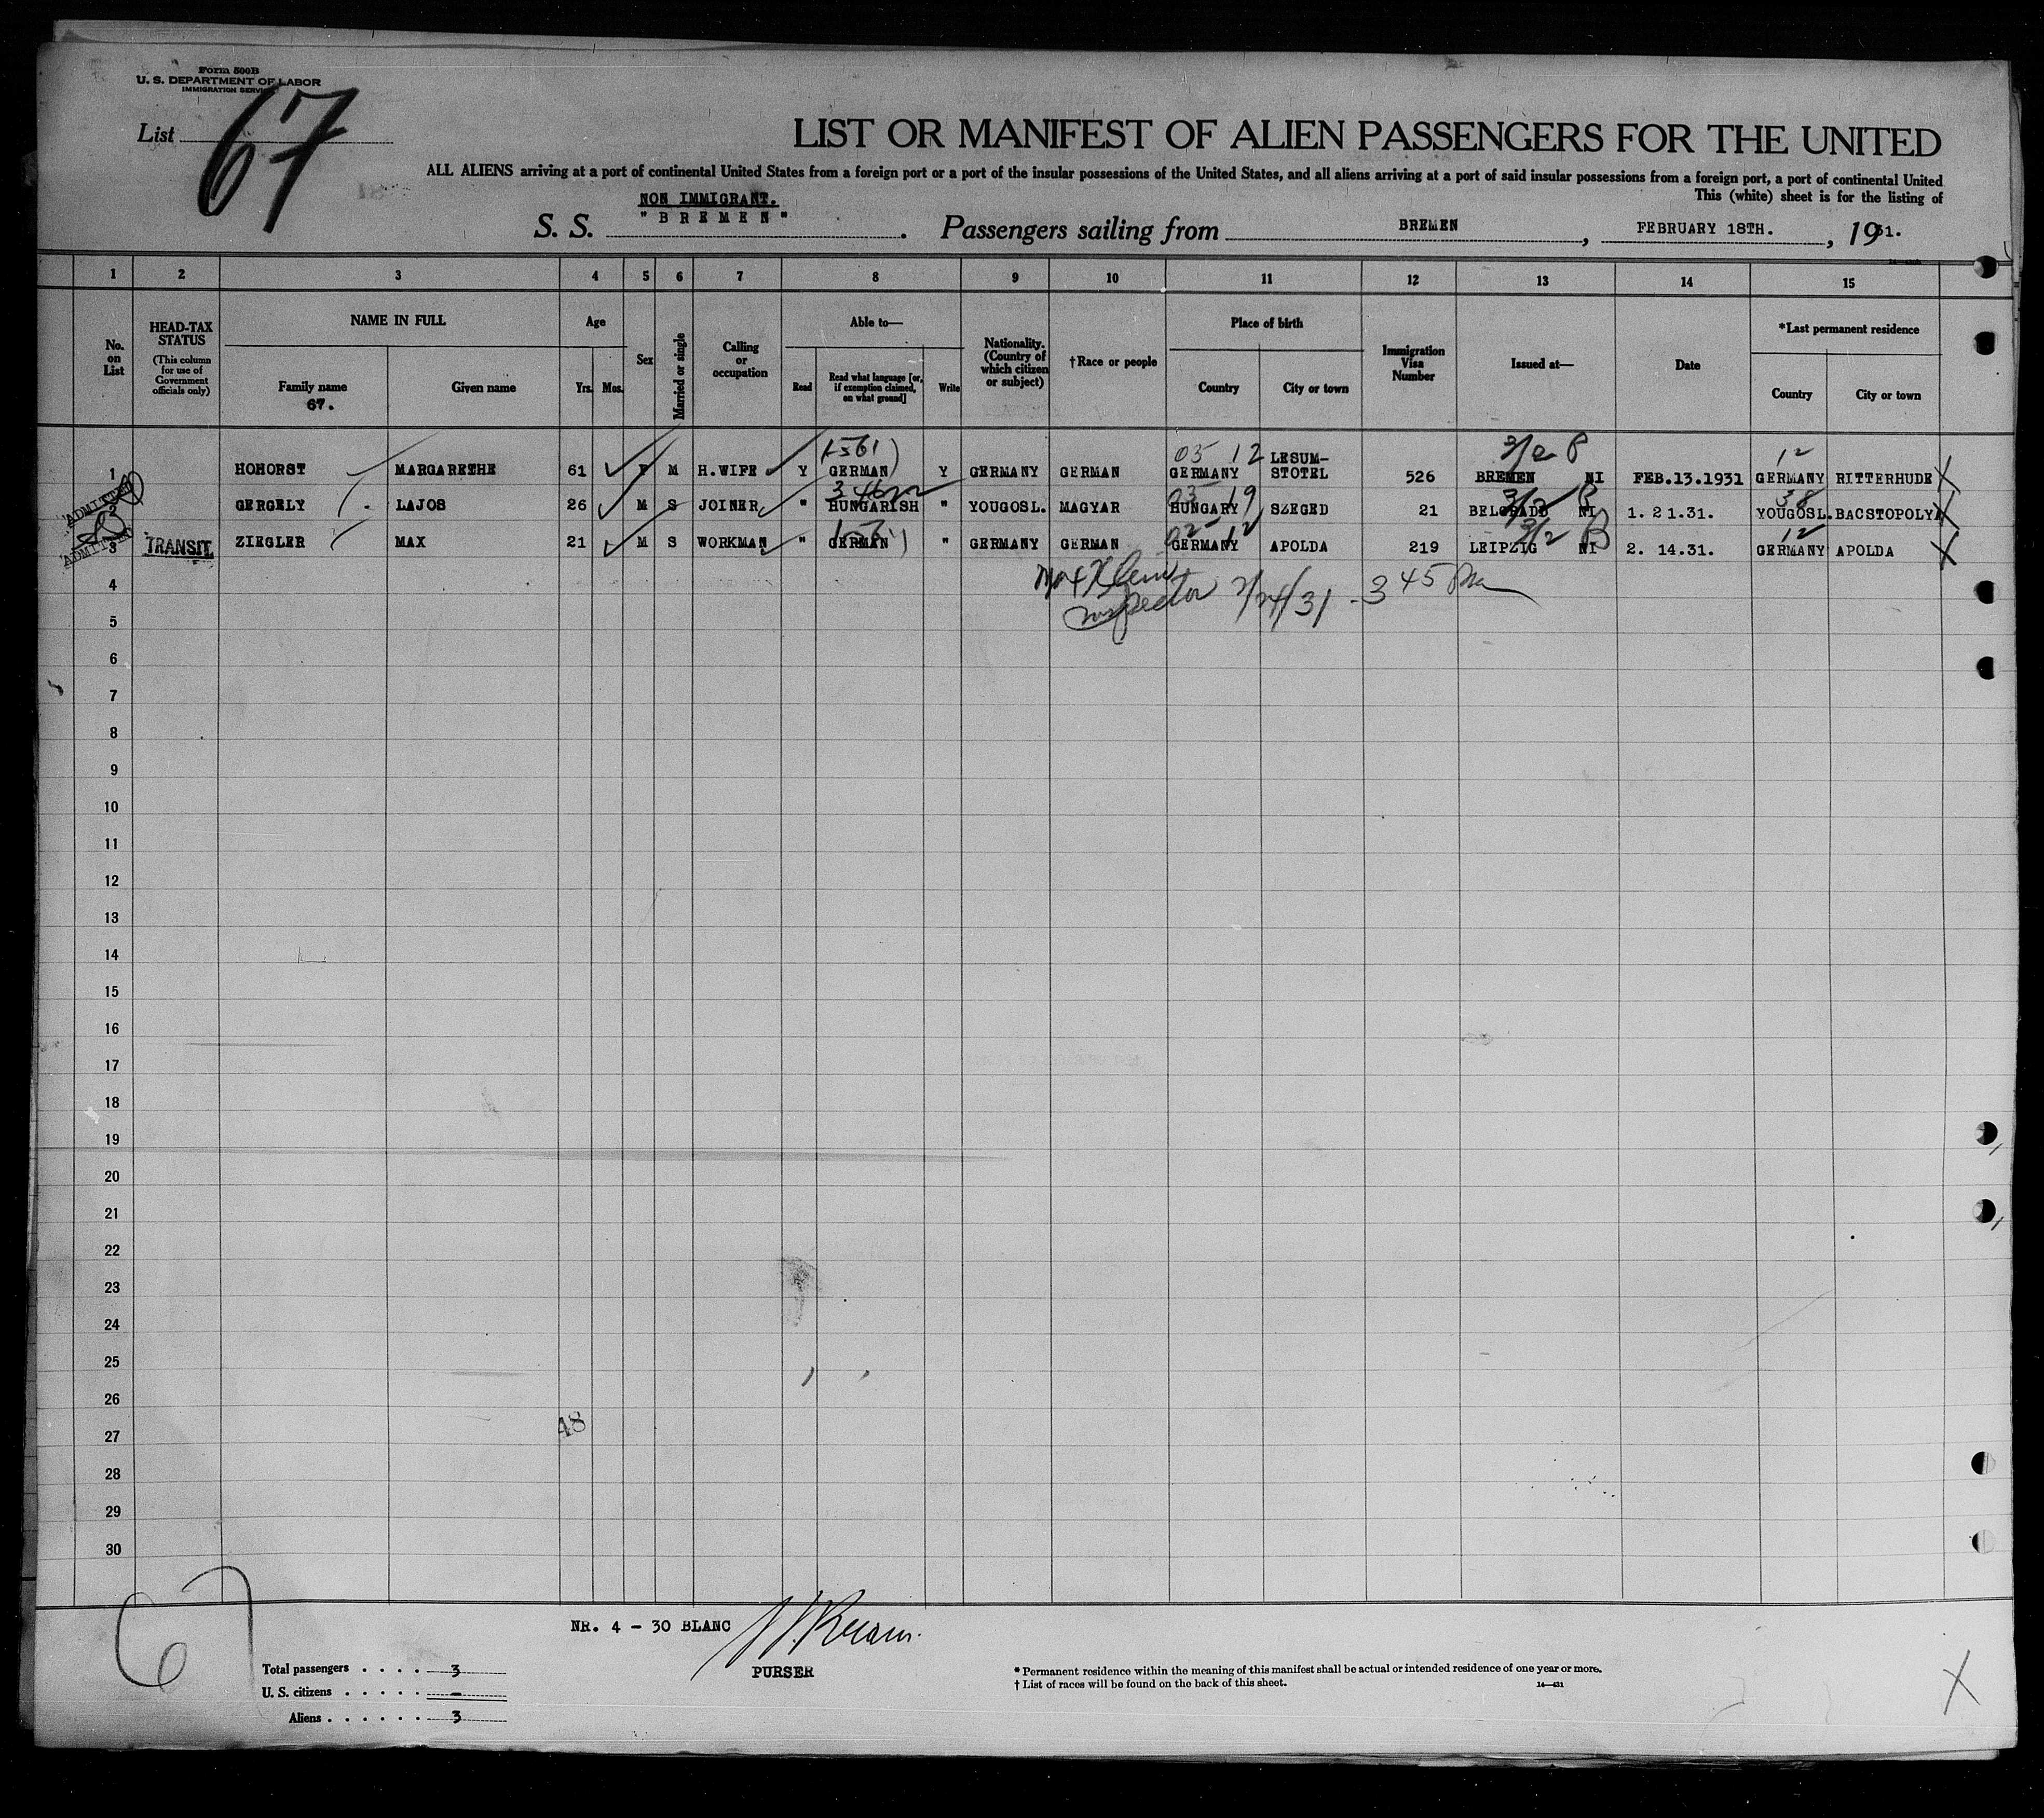 Form 500B
U. S. DEPARTMENT OF LABOR
IMMIGRATION SERVICE
List 67
LIST OR MANIFEST OF ALIEN PASSENGERS FOR THE UNITED
ALL ALIENS arriving at a port of continental United States from a foreign port or a port of the insular possessions of the United States, and all aliens arriving at a port of said insular possessions from a foreign port, a port of continental United
This (white) sheet is for the listing of
NON IMMIGRANT.
S. S. "BREMEN". Passengers sailing from BREMEN, FEBRUARY 18TH., 1931.
1 2 3 4 5 6 7 8 9 10 11 12 13 14 15
No. on List
HEAD-TAX STATUS
(This column for use of Government officials only)
NAME IN FULL
Family name
67.
Given name
Age
Yrs. Mos.
Sex
Married or single
Calling or occupation
Able to—
Read
Read what language [or, if exemption claimed, on what ground]
Write
Nationality. (Country of which citizen or subject)
†Race or people
Place of birth
Country
City or town
Immigration Visa Number
Issued at—
Date
*Last permanent residence
Country
City or town
05 12 3/2 12
1 HOHORST MARGARETHE 61 F M H.WIFE Y GERMAN Y GERMANY GERMAN GERMANY LESUM-STOTEL 526 BREMEN NI FEB.13.1931 GERMANY RITTERHUDE X
05 19 3/2 38
ADMITTED 2 GERGELY LAJOS 26 M S JOINER " HUNGARISH " YOUGOSL. MAGYAR HUNGARY SZEGED 21 BELGRADD NI 1. 21.31. YOUGOSL. BACSTOPOLYA X
12 3/2 12
ADMITTED 3 TRANSIT ZIEGLER MAX 21 M S WORKMAN " GERMAN " GERMANY GERMAN GERMANY APOLDA 219 LEIPZIG NI 2. 14.31. GERMANY APOLDA X
4
Inspector 2/24/31 - 3 45 PM
5
6
7
8
9
10
11
12
13
14
15
16
17
18
19
20
21
22
23
24
25
26
48
27
28
29
30
67
NR. 4 - 30 BLANC
PURSER
Total passengers . . . . 3
U. S. citizens . . . . . -
Aliens . . . . . . 3
* Permanent residence within the meaning of this manifest shall be actual or intended residence of one year or more.
† List of races will be found on the back of this sheet.
14—431
X